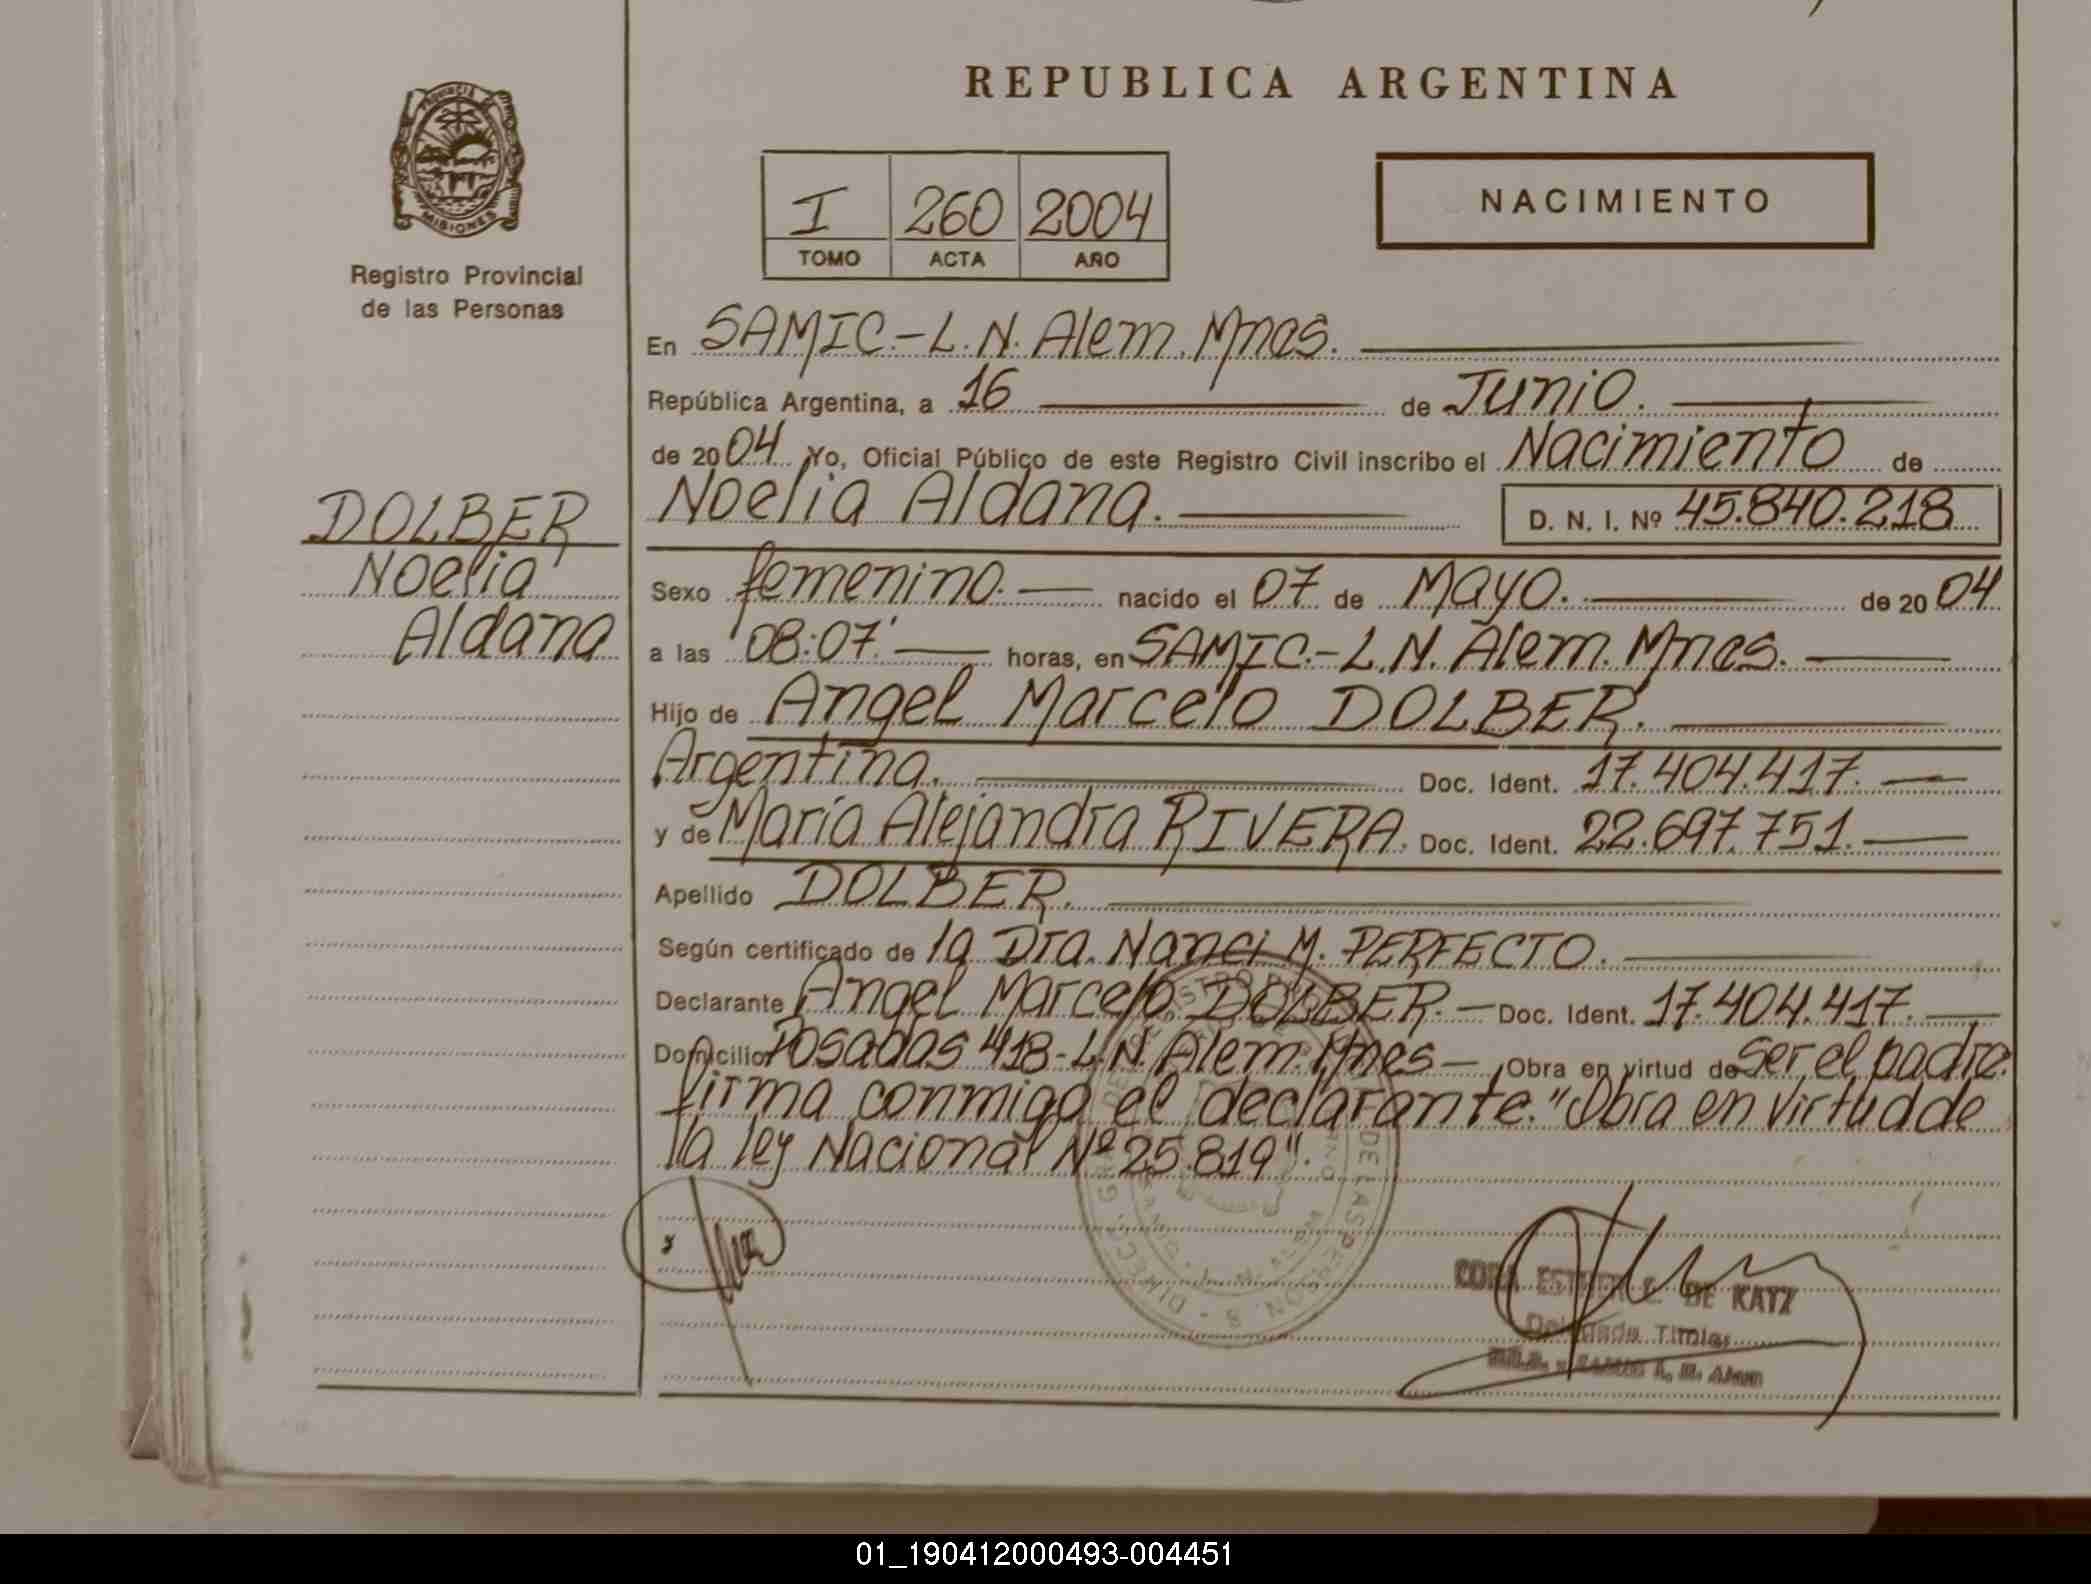 REPUBLICA ARGENTINA
PROVINCIA DE
MISIONES
Registro Provincial
de las Personas
I 260 2004
TOMO ACTA AÑO
NACIMIENTO
En SAMIC.-L.N. Alem. Mnes.
República Argentina, a 16 de Junio.
de 2004 Yo, Oficial Público de este Registro Civil inscribo el Nacimiento de
Noelia Aldana. D. N. I. Nº 45.840.218
DOLBER
Noelia
Aldana
Sexo femenino. nacido el 07 de Mayo. de 2004
a las 08:07' horas, en SAMIC.-L.N. Alem. Mnes.
Hijo de Angel Marcelo DOLBER.
Argentina. Doc. Ident. 17.404.417.
y de María Alejandra RIVERA. Doc. Ident. 22.697.751.
Apellido DOLBER.
Según certificado de la Dra. Nanci M. PERFECTO.
Declarante Angel Marcelo DOLBER. Doc. Ident. 17.404.417.
Domicilio Posadas 418-L.N. Alem. Mnes Obra en virtud de Ser el padre.
firma conmigo el declarante. "Obra en virtud de
la ley Nacional Nº 25.819".
L. N. ALEM
DE LAS PERSONAS
CORA ESTHER DE KATZ
Delegada Titular
SAMIC L. N. Alem
01_190412000493-004451